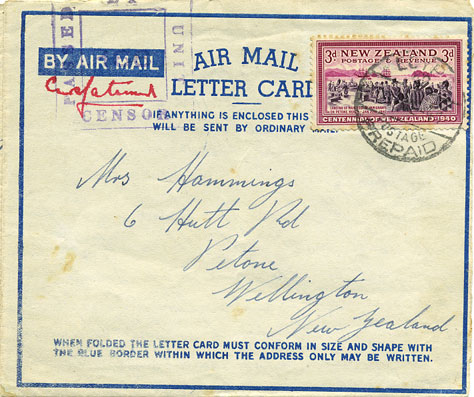 PASSED
BY
UNIT
CENSOR
BY AIR MAIL
AIR MAIL
LETTER CARD
IF ANYTHING IS ENCLOSED THIS
WILL BE SENT BY ORDINARY MAIL.
3d NEW ZEALAND 3d
POSTAGE & REVENUE
CENTENNIAL OF NEW ZEALAND 1940
POSTAGE
PREPAID
Mrs Hammings
6 Hutt Rd
Petone
Wellington
New Zealand
WHEN FOLDED THE LETTER CARD MUST CONFORM IN SIZE AND SHAPE WITH
THE BLUE BORDER WITHIN WHICH THE ADDRESS ONLY MAY BE WRITTEN.